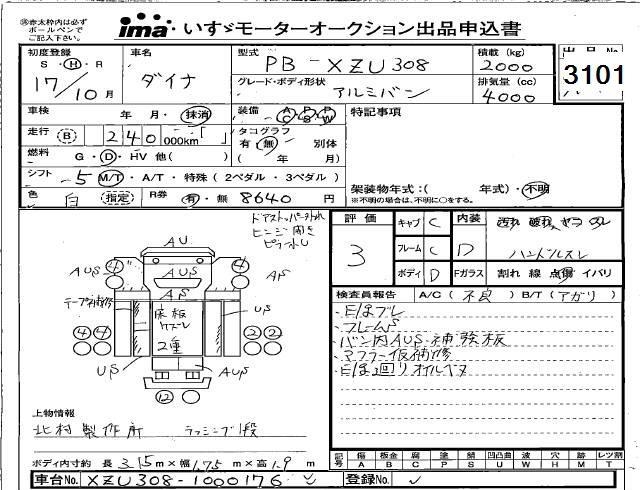 ㊟赤太枠内は必ず
ボールペンで
ご記入下さい。
ima いすゞモーターオークション出品申込書
初度登録 車名 型式 積載 (kg) 出品No
S・H・R ダイナ PB-XZU308 2000 3101
17/10月 グレード・ボディ形状 アルミバン 排気量 (cc) 4000
車検 年・月・抹消 装備 AC PS PW 特記事項
走行 B 240000km「 」 タコグラフ
有・無 別体
燃料 G・D・HV 他( ) ( 年 月)
シフト 5 M/T・A/T・特殊(2ペダル・3ペダル) 架装物年式:( 年式)・不明
※不明の場合は、不明に○をする。
色 白 指定 R券 有・無 8640円
ドアストッパー外れ
ヒンジ開き
評価 3 キャブ C 内装 D 汚れ 破れ ヤニ スレ
フレーム C ハンドルスレ
ボディ D Fガラス 割れ 線 点傷 イバリ
検査員報告 A/C (不良) B/T (アガリ)
・E/gブレ
・フレームS
・バン内AUS・補強板
・マフラー仮補修
・E/g回りオイルモレ
AU
4 AUS 4
AUS AUS AS
AS
テープ補修 床板 US
ケズレ
2重
4 4 2 2
US AUS
12
上物情報
北村製作所 ラッシング1段
ボディ内寸約 長 3.15m×幅 1.75m×高 1.9m
記号 傷 板金 腐 塗 錆 凹凸凹 波 穴 跡 レツ割
A B C P S U W H M T
車台No. XZU308-1000176 登録No.